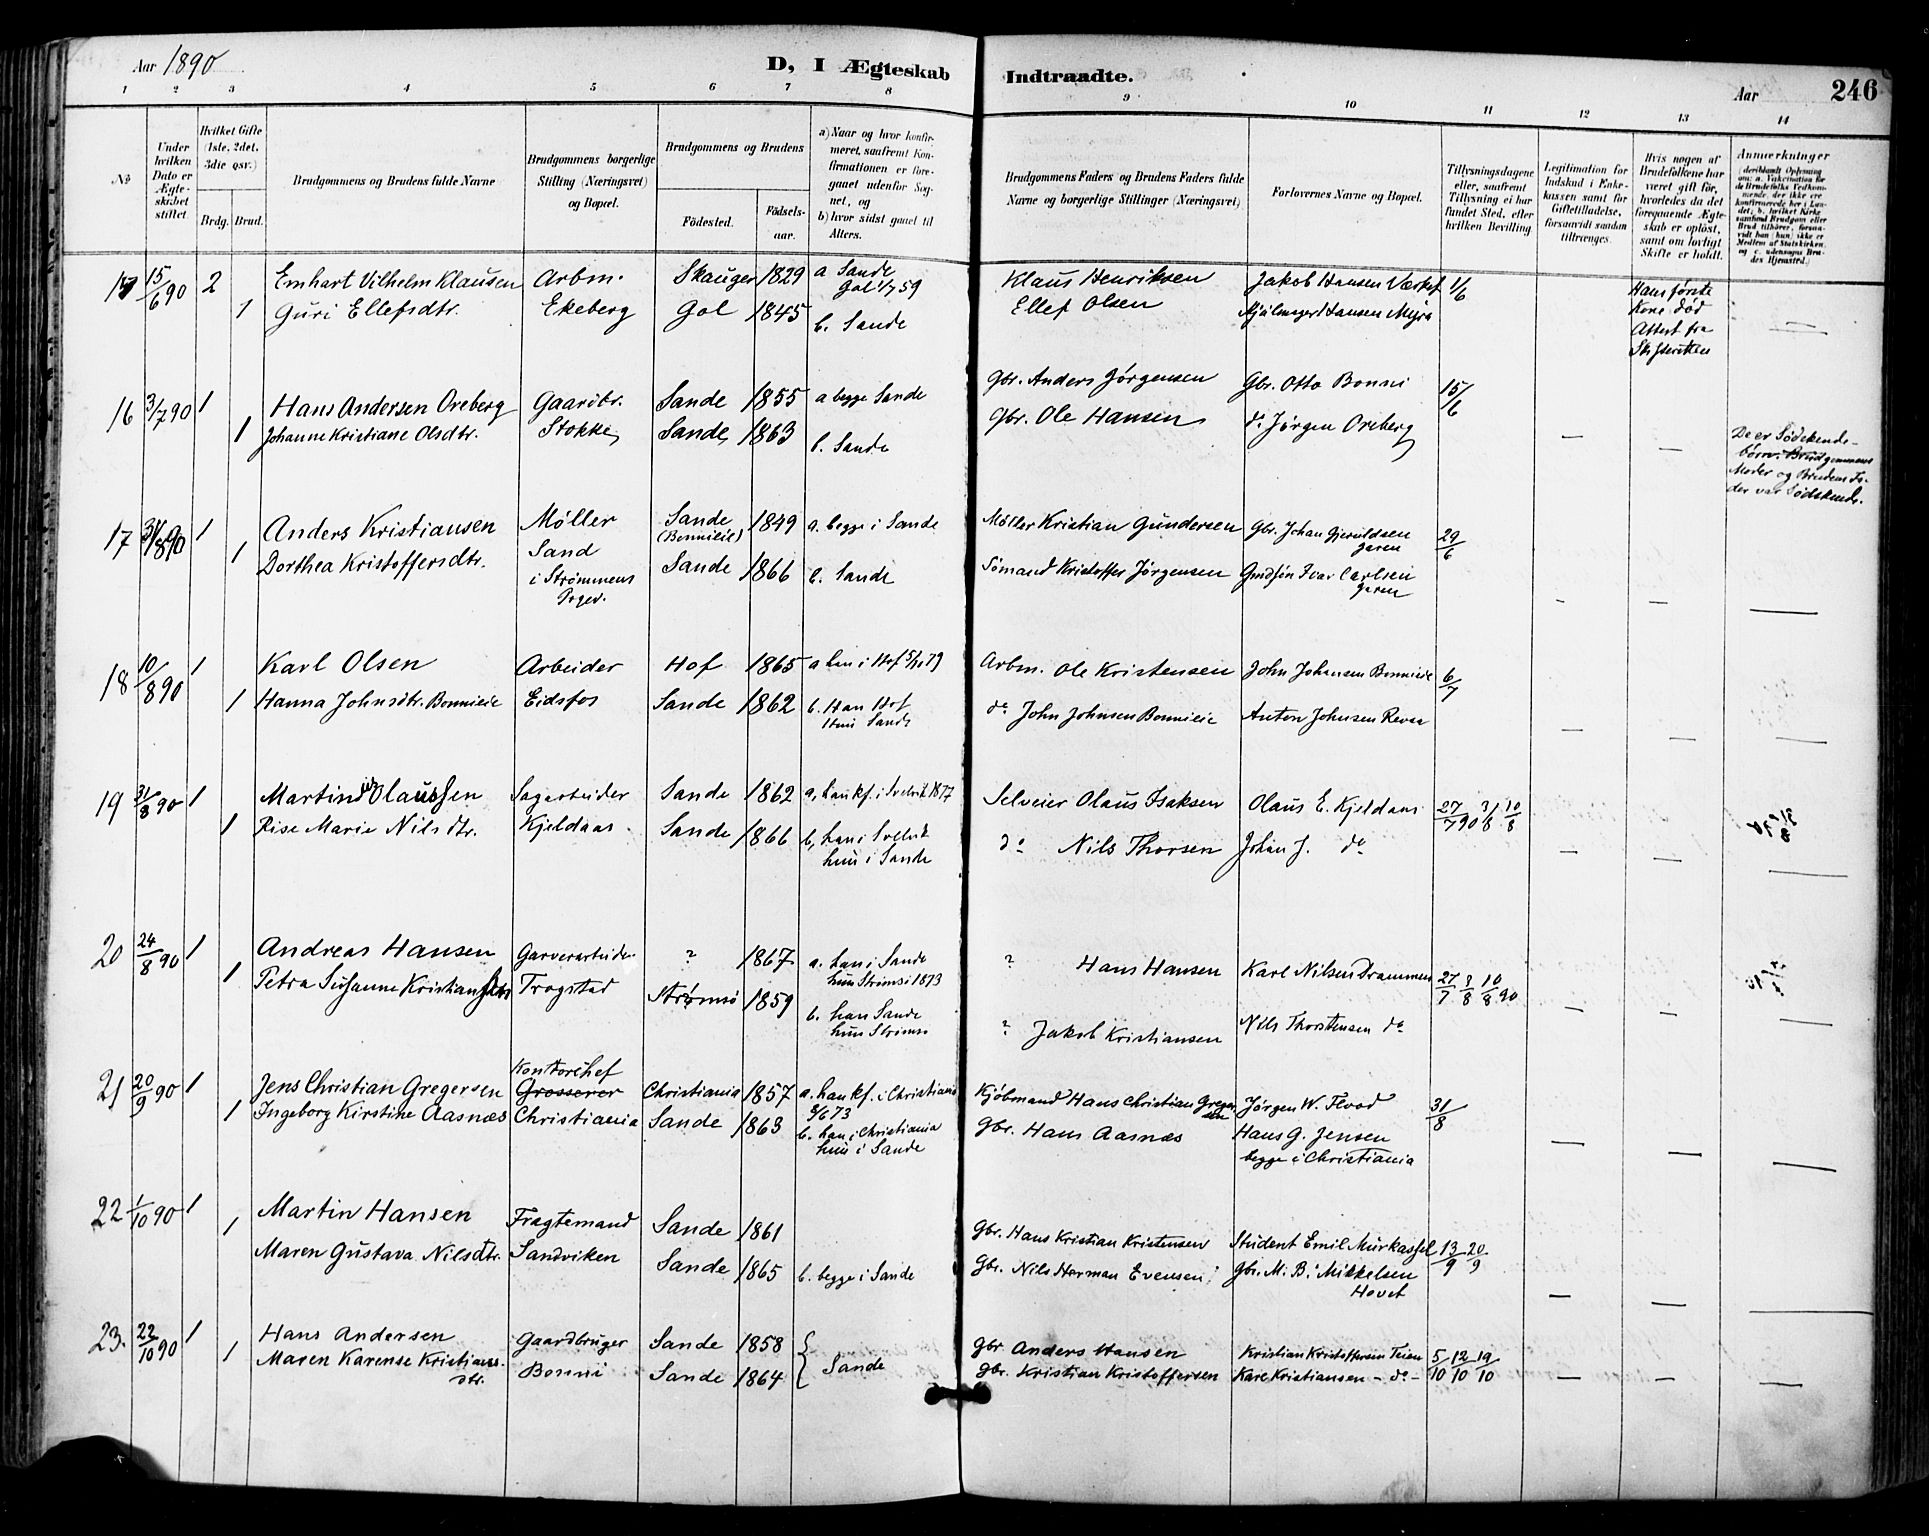 Aar 1890
D, I Ægteskab Indtraadte.
Aar 246
1 2 3 4 5 6 7 8 9 10 11 12 13 14
No
Under hvilken Dato er Ægteskabet stiftet.
Hvilket Gifte (1ste, 2det, 3die osv.)
Brdg. Brud.
Brudgommens og Brudens fulde Navne
Brudgommens borgerlige Stilling (Næringsvei) og Bopæl.
Brudgommens og Brudens
Fødested.
Fødselsaar.
a) Naar og hvor konfirmeret, saafremt Konfirmationen er foregaaet udenfor Sognet, og
b) hvor sidst gaaet til Alters.
Brudgommens Faders og Brudens Faders fulde Navne og borgerlige Stillinger (Næringsvei)
Forlovernes Navne og Bopæl.
Tillysningsdagene eller, saafremt Tillysning ei har fundet Sted, efter hvilken Bevilling
Legitimation for Indskud i Enkekassen samt for Giftetilladelse, forsaavidt saadan tiltrænges.
Hvis nogen af Brudefolkene har været gift før, hvorledes da det foregaaende Ægteskab er opløst, samt om lovligt Skifte er holdt.
Anmerkninger
15/6 90 2 Emhart Vilhelm Klausen Arbm. Skauger 1829 a Sande Klaus Henriksen Jakob Hansen 1/6 Hans første
1 Guri Ellefsdtr. Ekeberg Gol 1845 Gol 1/7 59 Ellef Olsen Hansen Myra Kone død
b. Sande Attest fra
16 3/7 90 1 Hans Andersen Oreberg Gaardbr. Sande 1855 a begge Sande Gbr. Anders Jørgensen Gbr. Otto Bonni 15/6
1 Johanne Kristiane Olsdtr. Stokke Sande 1863 b. Sande Gbr. Ole Hansen do Jørgen Oreberg
De er Sødskendebørn. Brudgommens
Moder og Brudens Fader
var Sødskende.
17 31/8 90 1 Anders Kristiansen Møller Sande 1849 a. begge i Sande Møller Kristian Gundersen Gbr. Johan Gjeruldsen 29/6
(Bonnieie) Jaren
1 Dorthea Kristoffersdtr. Sand Sande 1866 b. Sande Sømand Kristoffer Jørgensen Ivar Carlsen
i Strømmens Jaren
18 10/8 90 1 Karl Olsen Arbeider Hof 1865 a han i Hof 5/10 79 Arbm. Ole Kristensen John Johansen Bonnieie 6/7
1 Hanna Johnsdtr. Bonnieie Eidsfos Sande 1862 b. Han Hof do John Johnsen Bonnieie Anton Johnsen Revaa
Hun Sande
19 31/8 90 1 Martinius Olaussen Sagarbeider Sande 1862 a, han kf. i Svelvik 1877 Selveier Olaus Isaksen Olaus E. Kjeldaas 27/7 90 3/8 10/8
1 Rise Marie Nilsdtr. Kjeldaas Sande 1866 b, han i Svelvik do Nils Thorsen Johan J. do
hun i Sande
20 24/8 90 1 Andreas Hansen Garverarbeider ? 1867 a. han i Sande ? Hans Hansen Karl Nilsen Drammen 27/7 3/8 10/8 90
1 Petra Susanne Kristiansen Trogstad Strømsø 1859 hun Strømsø 1873 ? Jakob Kristiansen Nils Thorstensen do
b. han Sande
hun Strømsø
21 20/9 90 1 Jens Christian Gregersen Kontorchef Grosserer Christiania 1857 a. han kf. i Christiania Kjøbmand Hans Christian Gregersen Jørgen W. Flood 31/8
1 Ingeborg Kirstine Aasnæs Christiania Sande 1863 5/6 73 Gbr. Hans Aasnæs Hans G. Jensen
b. han i Christiania begge i Christiania
hun i Sande
22 1/10 90 1 Martin Hansen Fragtemand Sande 1861 Gbr. Hans Kristian Kristensen Student Emil Murkassel 13/9 20/9
1 Maren Gustava Nilsdtr. Sandviken Sande 1865 b. begge i Sande Gbr. Nils Herman Evensen Gbr. M. B. Mikkelsen
Hovet
23. 22/10 90 1 Hans Andersen Gaardbruger Sande 1858 Gbr Anders Hansen Kristian Kristoffersen Teien 5/10 12/10 19/10
1 Maren Karense Kristiansdtr. Bonni Sande 1864 Sande Gbr. Kristian Kristoffersen Kare Kristiansen - do -